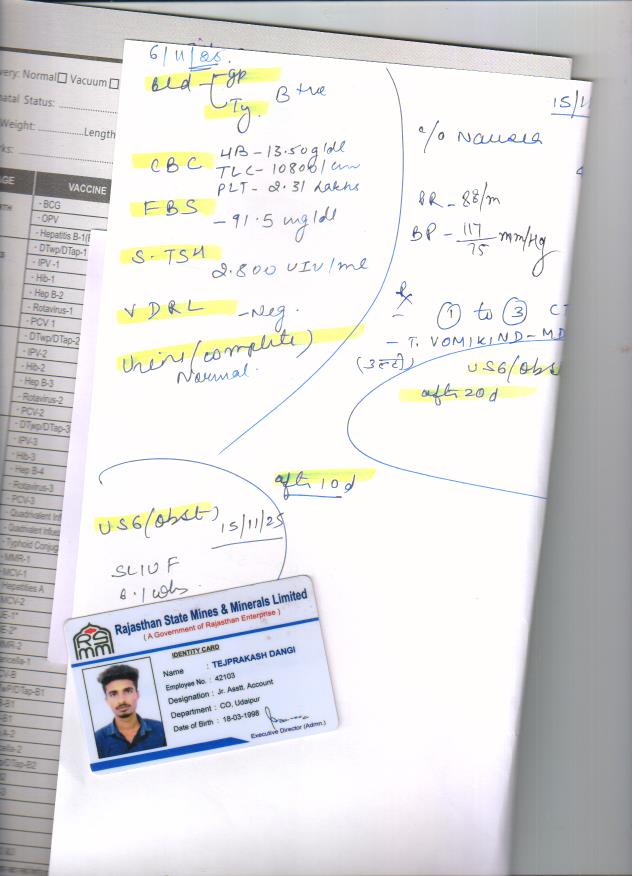 6/11/25.
Bld gp
Ty. B +ve
CBC HB - 13.50 g/dl
TLC - 10800/cm
PLT - 2.31 Lakhs
FBS
- 91.5 mg/dl
S.TSH
2.800 UIU/ml
VDRL - Neg.
Urine (complete)
Normal.
after 10 d
USG (obst) 15/11/25
SLIUF
6.1 wks.
15/1
c/o Nausea
PR - 88/m
BP - 117/75 mm/Hg
Rx
① to ③ CT
- T. VOMIKIND - MD
(उल्टी)
USG (obst
after 20 d
very: Normal☐ Vacuum☐
natal Status:
Weight: Length
rks:
AGE VACCINE
- BCG
- OPV
- Hepatitis B-1
- DTwp/DTap-1
- IPV-1
- Hib-1
- Hep B-2
- Rotavirus-1
- PCV 1
- DTwp/DTap-2
- IPV-2
- Hib-2
- Hep B-3
- Rotavirus-2
- PCV-2
- DTwp/DTap-3
- IPV-3
- Hib-3
- Hep B-4
- Rotavirus-3
- PCV-3
- Typhoid Conjug
- MMR-1
MCV-1
Hepatitis A
MCV-2
MMR-2
RSMM
Rajasthan State Mines & Minerals Limited
( A Government of Rajasthan Enterprise )
IDENTITY CARD
Name : TEJPRAKASH DANGI
Employee No. : 42103
Designation : Jr. Asstt. Account
Department : CO, Udaipur
Date of Birth : 18-03-1998
Executive Director (Admn.)